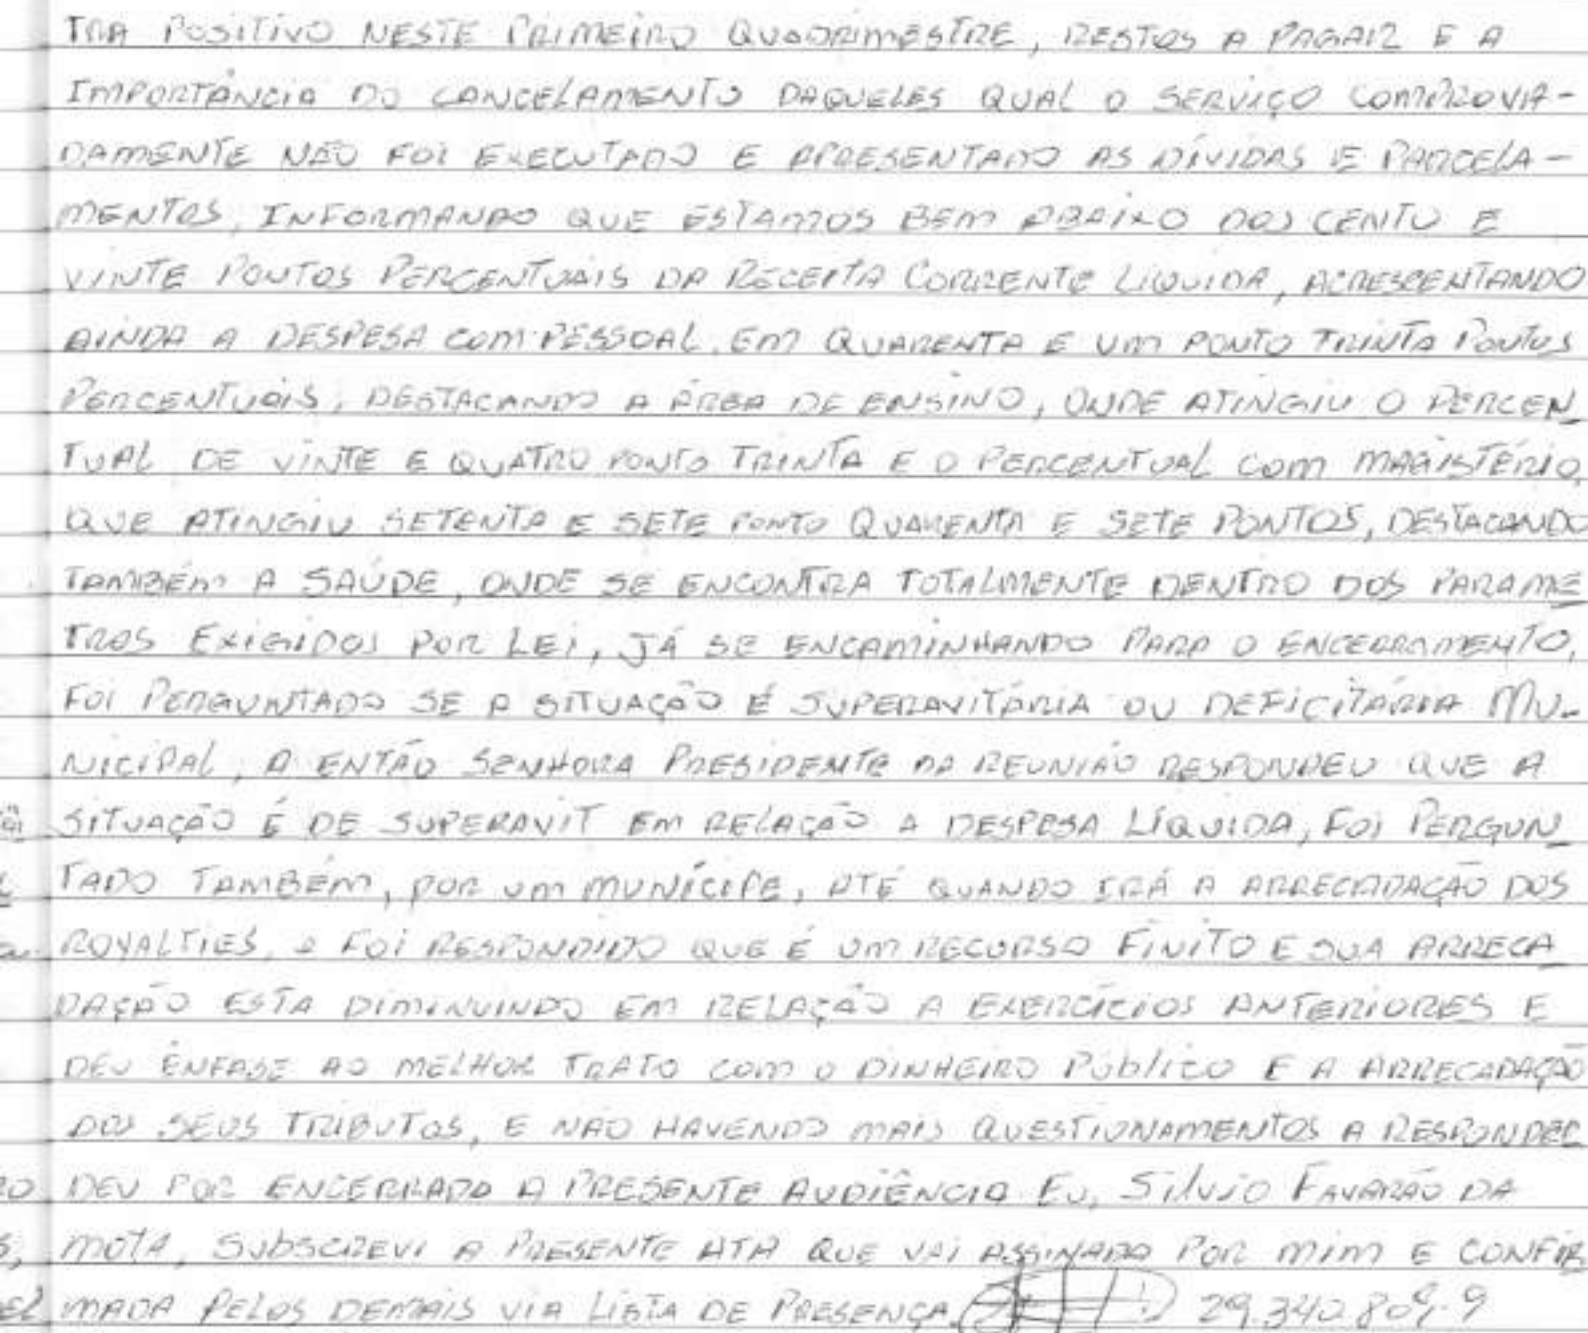 TRA POSITIVO NESTE PRIMEIRO QUADRIMESTRE, RESTOS A PAGAR E A
IMPORTÂNCIA DO CANCELAMENTO DAQUELES QUAL O SERVIÇO COMPROVA-
DAMENTE NÃO FOI EXECUTADO E APRESENTADO AS DÍVIDAS E PARCELA-
MENTOS, INFORMANDO QUE ESTAMOS BEM ABAIXO DOS CENTO E
VINTE PONTOS PERCENTUAIS DA RECEITA CORRENTE LÍQUIDA, ACRESCENTANDO
AINDA A DESPESA COM PESSOAL, EM QUARENTA E UM PONTO TRINTA PONTOS
PERCENTUAIS, DESTACANDO A ÁREA DE ENSINO, ONDE ATINGIU O PERCEN
TUAL DE VINTE E QUATRO PONTO TRINTA E O PERCENTUAL COM MAGISTÉRIO,
QUE ATINGIU SETENTA E SETE PONTO QUARENTA E SETE PONTOS, DESTACANDO
TAMBÉM A SAÚDE, ONDE SE ENCONTRA TOTALMENTE DENTRO DOS PARAME
TROS EXIGIDOS POR LEI, JÁ SE ENCAMINHANDO PARA O ENCERRAMENTO,
FOI PERGUNTADO SE A SITUAÇÃO É SUPERAVITÁRIA OU DEFICITÁRIA MU-
NICIPAL, A ENTÃO SENHORA PRESIDENTE DA REUNIÃO RESPONDEU QUE A
SITUAÇÃO É DE SUPERAVIT EM RELAÇÃO A DESPESA LÍQUIDA, FOI PERGUN
TADO TAMBÉM, POR UM MUNÍCIPE, ATÉ QUANDO IRÁ A ARRECADAÇÃO DOS
ROYALTIES, E FOI RESPONDIDO QUE É UM RECURSO FINITO E SUA ARRECA
DAÇÃO ESTA DIMINUINDO EM RELAÇÃO A EXERCÍCIOS ANTERIORES E
DEU ÊNFASE AO MELHOR TRATO COM O DINHEIRO PÚBLICO E A ARRECADAÇÃO
DOS SEUS TRIBUTOS, E NÃO HAVENDO MAIS QUESTIONAMENTOS A RESPONDER
DEU POR ENCERRADA A PRESENTE AUDIÊNCIA EU, SILVIO FAVARÃO DA
MOTA, SUBSCREVI A PRESENTE ATA QUE VAI ASSINADA POR MIM E CONFIR
MADA PELOS DEMAIS VIA LISTA DE PRESENÇA. 29.340.809-9